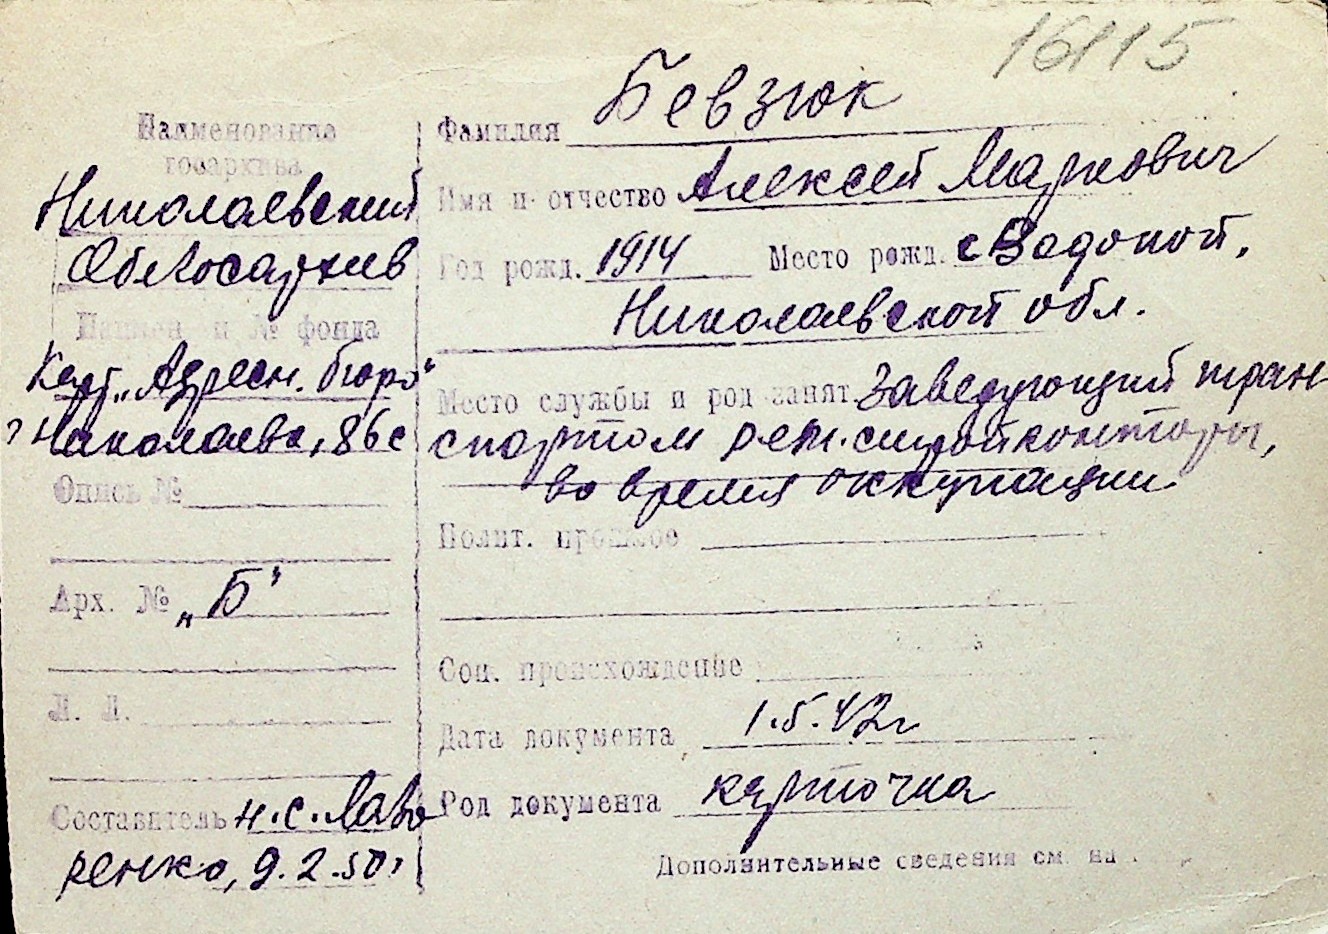 16115
Наименование
госархива
Николаевский
Облгосархив
Наимен. и № фонда
Карт. „Адресн. бюро"
г Николаева, 86с
Опись №
Арх. № „Б"
Л. Л.
Составитель Н.С. Лаво
ренко, 9.2.50г
Фамилия Бевзюк
Имя и отчество Алексей Маркович
Год рожд. 1914 Место рожд. с Водопой,
Николаевской обл.
Место службы и род занят. Заведующий тран
спортом рем.стройконторы,
во время оккупации
Полит. прошлое
Соц. происхождение
Дата документа 1.5.42г
Род документа карточка
Дополнительные сведения см. на